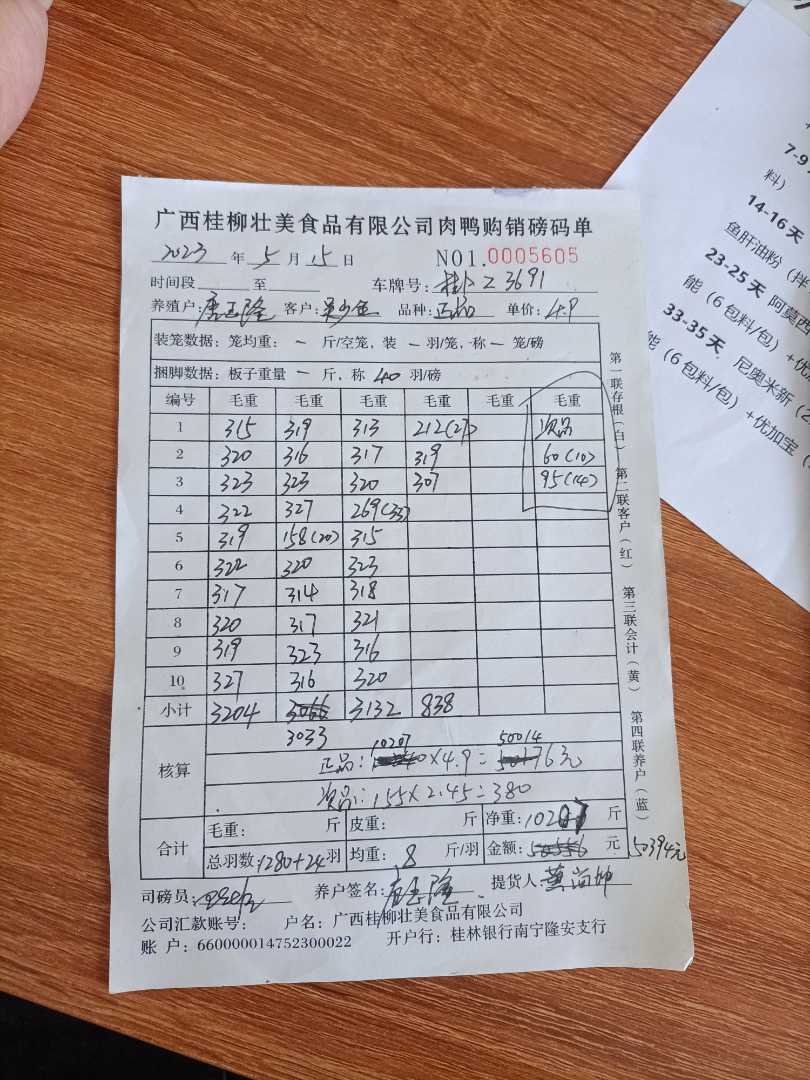 广西桂柳壮美食品有限公司肉鸭购销磅码单
2023 年 5 月 15 日 NO1.0005605
时间段 至 车牌号: 桂 Z3691
养殖户: 唐玉隆 客户: 品种: 正品 单价: 4.9
装笼数据: 笼均重: 一 斤/空笼, 装 一 羽/笼, 称 一 笼/磅
捆脚数据: 板子重量 一 斤, 称 40 羽/磅
编号 毛重 毛重 毛重 毛重 毛重 毛重
1 315 319 313 212(27) 次品
2 320 316 317 319 60(10)
3 323 323 320 307 95(14)
4 322 327 269(33)
5 319 158(20) 315
6 322 320 323
7 317 314 318
8 320 317 321
9 319 323 316
10 327 316 320
小计 3204 3066 3132 838
3033
核算
10207 50014
正品: 0×4.9= 76元
次品: 155×2.45=380
合计
毛重: 斤 皮重: 斤 净重: 斤
总羽数: 1280+24 羽 均重: 8 斤/羽 金额: 50556 元 50394元
司磅员: 养户签名: 唐玉隆 提货人: 黄
公司汇款账号: 户名: 广西桂柳壮美食品有限公司
账 户: 660000014752300022 开户行: 桂林银行南宁隆安支行
第一联存根(白) 第二联客户(红) 第三联会计(黄) 第四联养户(蓝)
7-9
料)
14-16 天
鱼肝油粉 (拌
23-25 天 阿莫西
能 (6 包料/包) +优
33-35 天, 尼奥米新 (2
能 (6 包料/包) +优加宝